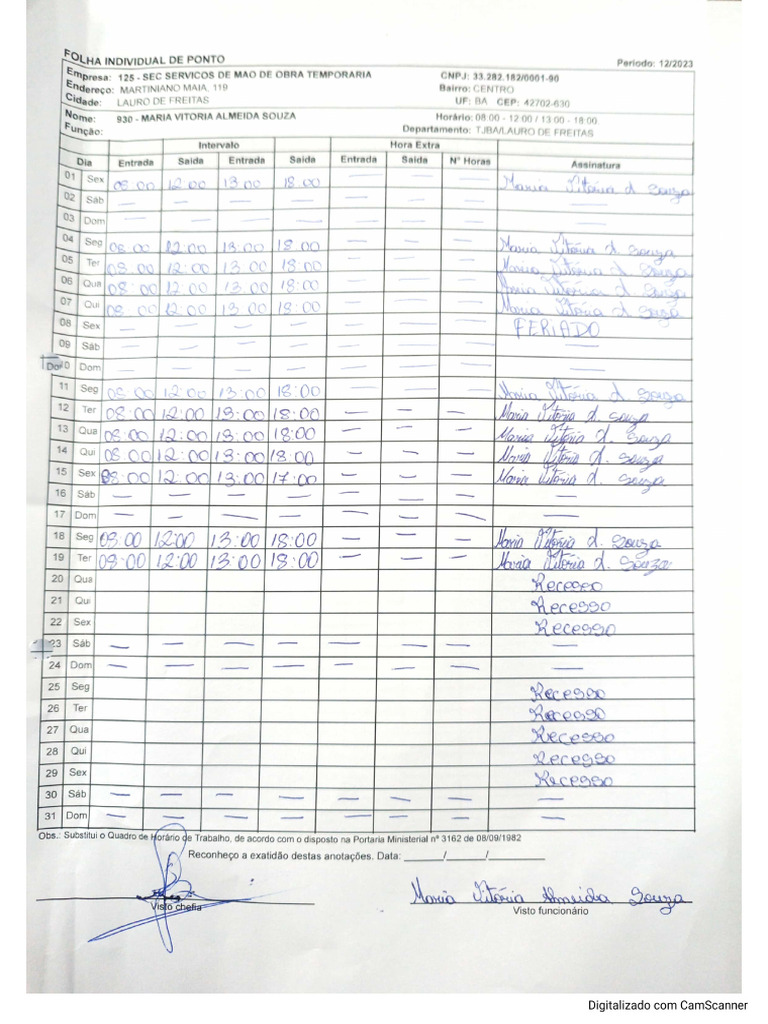 FOLHA INDIVIDUAL DE PONTO Periodo: 12/2023
Empresa: 125 - SEC SERVICOS DE MAO DE OBRA TEMPORARIA CNPJ: 33.282.182/0001-90
Endereço: MARTINIANO MAIA, 119 Bairro: CENTRO
Cidade: LAURO DE FREITAS UF: BA CEP: 42702-630
Nome: 930 - MARIA VITORIA ALMEIDA SOUZA Horário: 08:00 - 12:00 / 13:00 - 18:00
Função: Departamento: TJBA/LAURO DE FREITAS
Intervalo Hora Extra
Dia Entrada Saida Entrada Saida Entrada Saida N° Horas Assinatura
01 Sex 08:00 12:00 13:00 18:00 — — — Maria Vitória A. Souza
02 Sáb — — — — — — — —
03 Dom — — — — — — — —
04 Seg 08:00 12:00 13:00 18:00 — — — Maria Vitória A. Souza
05 Ter 08:00 12:00 13:00 18:00 — — — Maria Vitória A. Souza
06 Qua 08:00 12:00 13:00 18:00 — — — Maria Vitória A. Souza
07 Qui 08:00 12:00 13:00 18:00 — — — Maria Vitória A. Souza
08 Sex — — — — — — — FERIADO
09 Sáb — — — — — — — —
10 Dom — — — — — — — —
11 Seg 08:00 12:00 13:00 18:00 — — — Maria Vitória A. Souza
12 Ter 08:00 12:00 13:00 18:00 — — — Maria Vitória A. Souza
13 Qua 08:00 12:00 13:00 18:00 — — — Maria Vitória A. Souza
14 Qui 08:00 12:00 13:00 18:00 — — — Maria Vitória A. Souza
15 Sex 08:00 12:00 13:00 17:00 — — — Maria Vitória A. Souza
16 Sáb — — — — — — — —
17 Dom — — — — — — — —
18 Seg 08:00 12:00 13:00 18:00 — — — Maria Vitória A. Souza
19 Ter 08:00 12:00 13:00 18:00 — — — Maria Vitória A. Souza
20 Qua Recesso
21 Qui Recesso
22 Sex Recesso
23 Sáb — — — — — — — —
24 Dom — — — — — — — —
25 Seg Recesso
26 Ter Recesso
27 Qua Recesso
28 Qui Recesso
29 Sex Recesso
30 Sáb — — — — — — — —
31 Dom — — — — — — — —
Obs.: Substitui o Quadro de Horário de Trabalho, de acordo com o disposto na Portaria Ministerial nº 3162 de 08/09/1982
Reconheço a exatidão destas anotações. Data: ______/______/_________
Maria Vitória Almeida Souza
Visto chefia Visto funcionário
Digitalizado com CamScanner